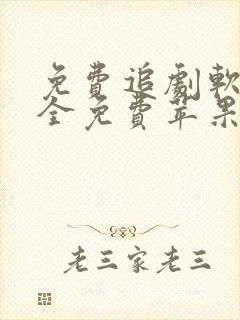 免費追劇軟
全免費苹果
老三家老三